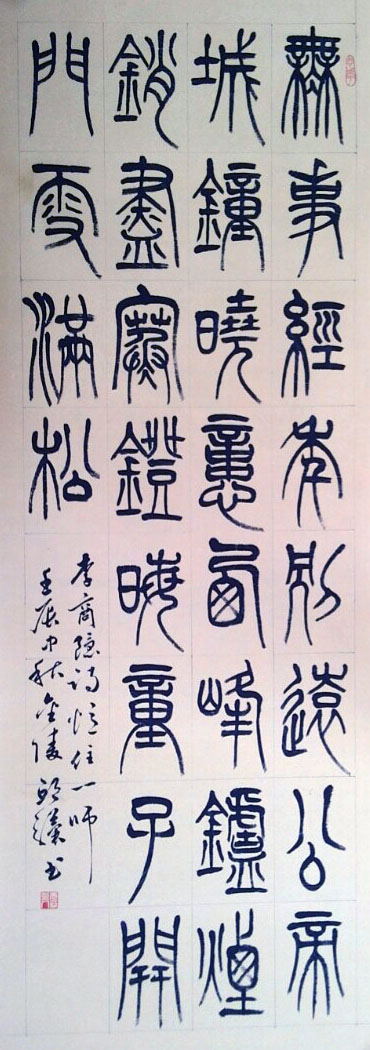 無事經年別遠公帝
城鐘曉憶西峰鑪煙
銷盡寒鐙晦童子開
門雪滿松
李商隱詩憶住一師
壬辰中秋金陵书